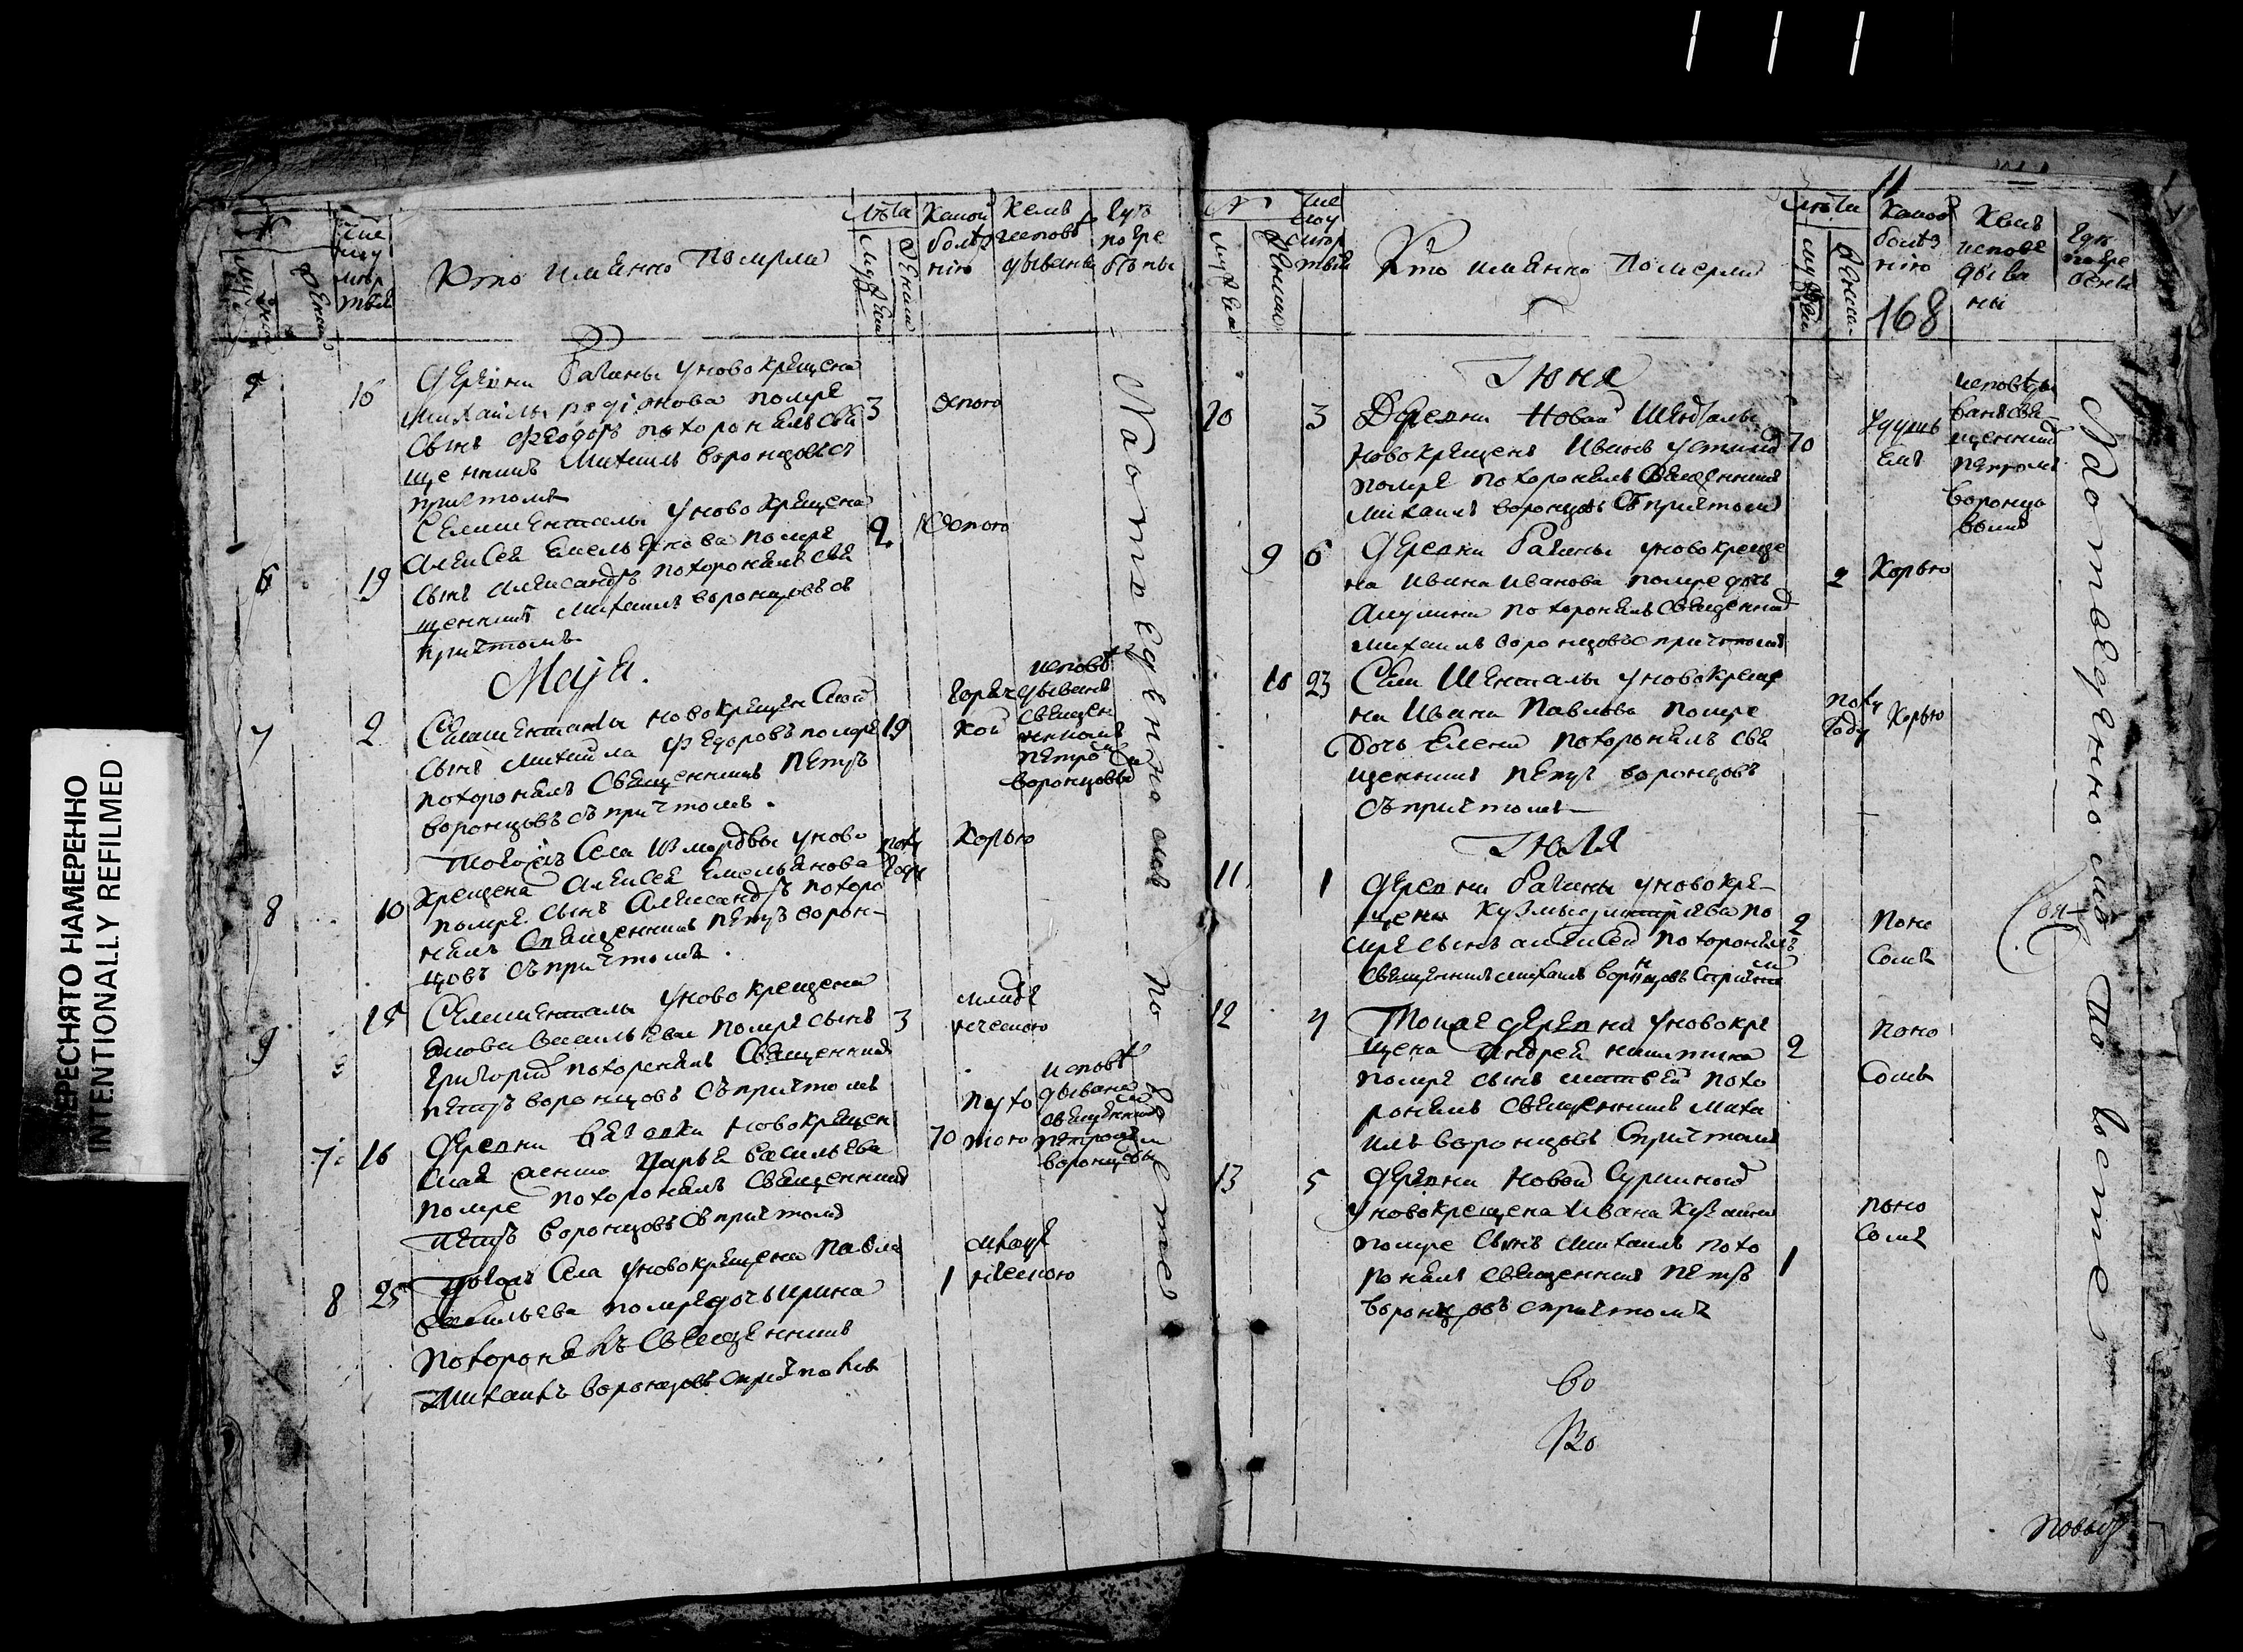 ПЕРЕСНЯТО НАМЕРЕННО
INTENTIONALLY REFILMED
№
Кто имѧнно померли
лѣта
какой
болѣз
нїю
кемъ
исповѣ
дываны
гдѣ
погре
бены
5
16
деревни Рачины уновокрещена
Михаилы родїонова помре
сынъ Феодоръ похоронилъ свя
щенникъ Михаилъ воронцовъ съ
притчомъ
3
оспою
6
19
Села Шенталы уновокрещена
Алексея Емельянова помре
сынъ Александръ похоронилъ свя
щенникъ Михаилъ воронцовъ съ
притчомъ
2
оспою
Маїя.
7
2
Села Шенталы новокрещен
сынъ Михаила Федоровъ помре
похоронилъ Священникъ Петръ
воронцовъ съ притчомъ.
19
горяч
кой
исповѣ
дыванъ
священ
никомъ
Петромъ
воронцовы
8
10
Тогожъ Села изморdвы уново
крещена Алексея Емельянова
помре сынъ Александръ похоро
нилъ Священникъ Петръ ворон-
цовъ съ притчомъ.
полу
году
корью
9
15
Села Шенталы уновокрещена
Якова васильева помре сынъ
Григорий похоронилъ Священникъ
Петръ воронцовъ съ притчомъ
3
младе
нческою
7
16
деревни новокрещен
ская жонка Дарья васильева
помре похоронилъ Священникъ
Петръ воронцовъ съ притчомъ
70
исповѣ
дывана
священником
Петромъ
воронцовы
8
25
Тогожъ Села уновокрещена Павла
васильева помре дочь Ирина
похоронилъ Священникъ
Михаилъ воронцовъ с притчомъ
1
младе
нческою
На отведенномъ по место
№
Кто имянно Померли
лѣта
какою
болѣз
нїю
кемъ
испове
дыва
ны
гдѣ
погре
бены
11
168
Іюня
10
3
Деревни Новой Шенталы
новокрещенъ Иванъ устинов
помре похоронилъ Священникъ
Михаилъ воронцовъ съ притчомъ
70
удушь
емъ
исповѣды
ванъ свя
щенником
Петромъ
воронцо
вымъ
9
6
деревни Рачины уновокреще
на Ивана Иванова помре дочь
Акулина похоронилъ Священникъ
Михаилъ воронцовъ с притчомъ
2
Корью
10
23
Села Шенталы уновокреще
на Ивана Павлова помре
дочь Елена похоронилъ свя
щенникъ Петръ воронцовъ
съ притчомъ
полу
году
Корью
Іюля
11
1
деревни Рачины уновокре-
щена Кузмы дмитриева по
мре сынъ алексей похоронилъ
священникъ михаилъ воронцовъ с притчом
2
поно
сомъ
12
4
Тойже деревни уновокре
щена Андрея никитина
помре сынъ матвей похо
ронилъ священникъ Миха
илъ воронцовъ с притчомъ
2
поно
сомъ
13
5
деревни Новой Суркиной
уновокрещена Ивана Кузмина
помре сынъ Михаилъ похо
ронилъ священникъ Петръ
воронцовъ с притчомъ
1
поно
сомъ
На отведенномъ по место